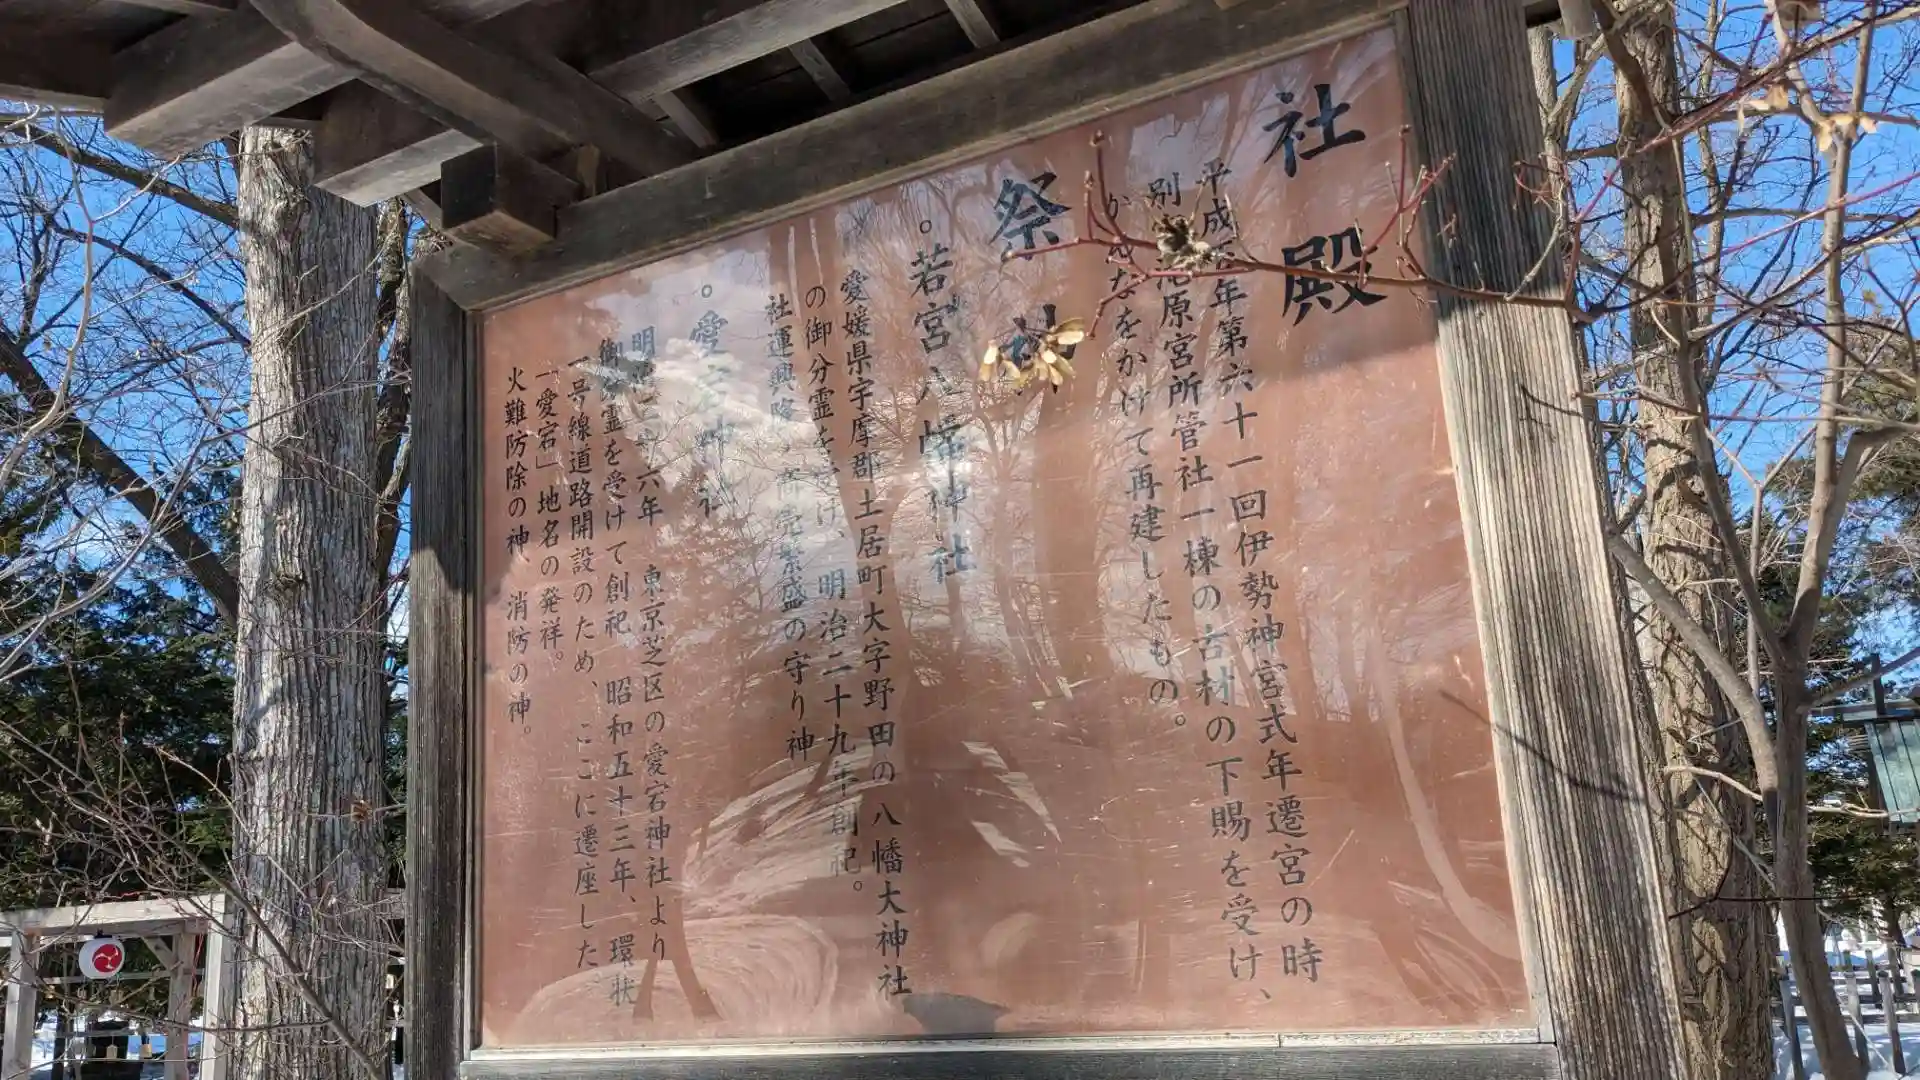 社殿
平成 年第六十一回伊勢神宮式年遷宮の時
別 原宮所管社一棟の古材の下賜を受け、
か なをかけて再建したもの。
祭神
。若宮八幡神社
愛媛県宇摩郡土居町大字野田の八幡大神社
の御分霊を け、明治二十九年創祀。
社運興隆、商売繁盛の守り神
。愛宕神社
明 六年 東京芝区の愛宕神社より
御分霊を受けて創祀 昭和五十三年、環状
一号線道路開設のため、ここに遷座した。
「愛宕」地名の発祥。
火難防除の神、消防の神。